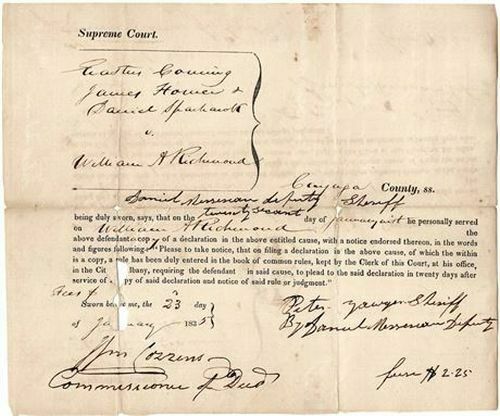 Supreme Court.
Erastus Corning
James Horner &
Daniel
v.
William A Richmond
Cayuga County, ss.
Daniel Messenan deputy Sheriff
being duly sworn, says, that on the twenty second day of January inst he personally served
on William A Richmond the
above defendant a copy of a declaration in the above entitled cause, with a notice endorsed thereon, in the words
and figures following: "Please to take notice, that on filing a declaration in the above cause, of which the within
is a copy, a rule has been duly entered in the book of common rules, kept by the Clerk of this Court, at his office,
in the Cit bany, requiring the defendant in said cause, to plead to the said declaration in twenty days after
service of py of said declaration and notice of said rule or judgment."
Sworn before me, the 23 day
of January 1835
Peter Yawger Sheriff
By Daniel Messenan Deputy
Cozzens
Commissioner of Deeds
$2.25